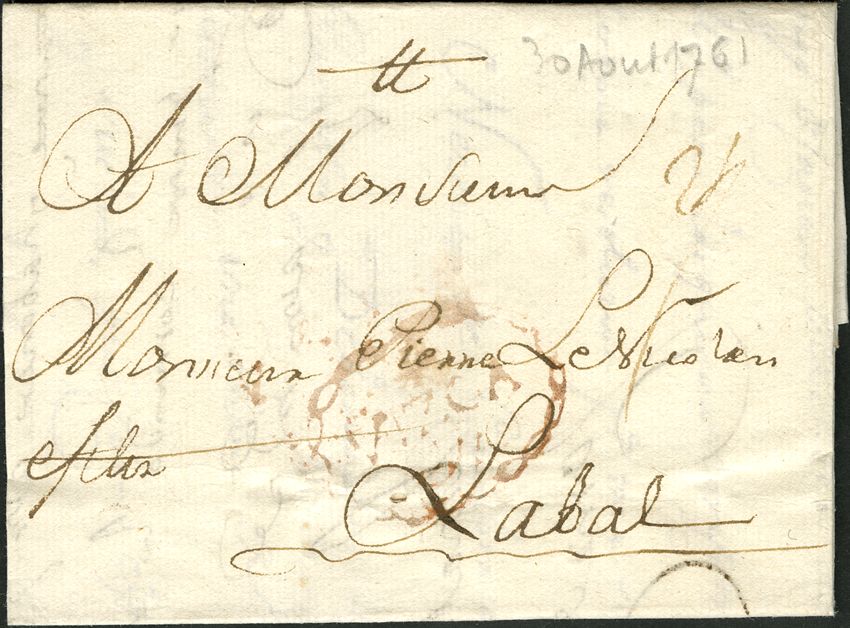 30 Aout 1761
A Monsieur
Monsieur Pierre Le Nicolais
filx
Labal